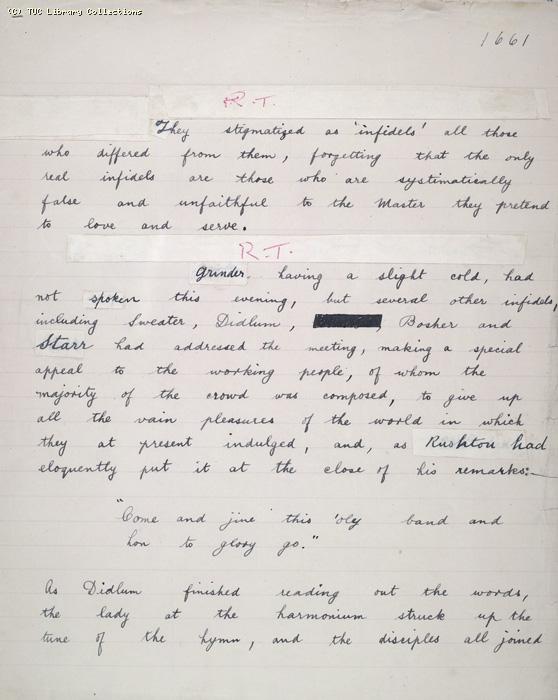 (C) TUC Library Collections
1661
R.T.
They stigmatized as 'infidels' all those
who differed from them, forgetting that the only
real infidels are those who are systimatically
false and unfaithful to the Master they pretend
to love and serve.
R.T.
Grinder, having a slight cold, had
not spoken this evening, but several other infidels,
including Sweater, Didlum, , Bosher and
Starr had addressed the meeting, making a special
appeal to the working people, of whom the
majority of the crowd was composed, to give up
all the vain pleasures of the world in which
they at present indulged, and, as Rushton had
eloquently put it at the close of his remarks:—
"Come and jine this 'oly band and
hon to glory go."
As Didlum finished reading out the words,
the lady at the harmonium struck up the
tune of the hymn, and the disciples all joined